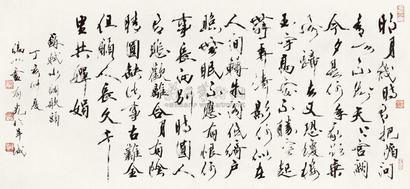 明月幾時有把酒問
青天不知天上宮闕
今夕是何年我欲乘
風歸去又恐瓊樓
玉宇高處不勝寒起
舞弄清影何似在
人間轉朱閣低綺戶
照無眠不應有恨何
事長向別時圓人
有悲歡離合月有陰
晴圓缺此事古難全
但願人長久千
里共嬋娟
蘇軾水調歌頭
丁亥仲夏